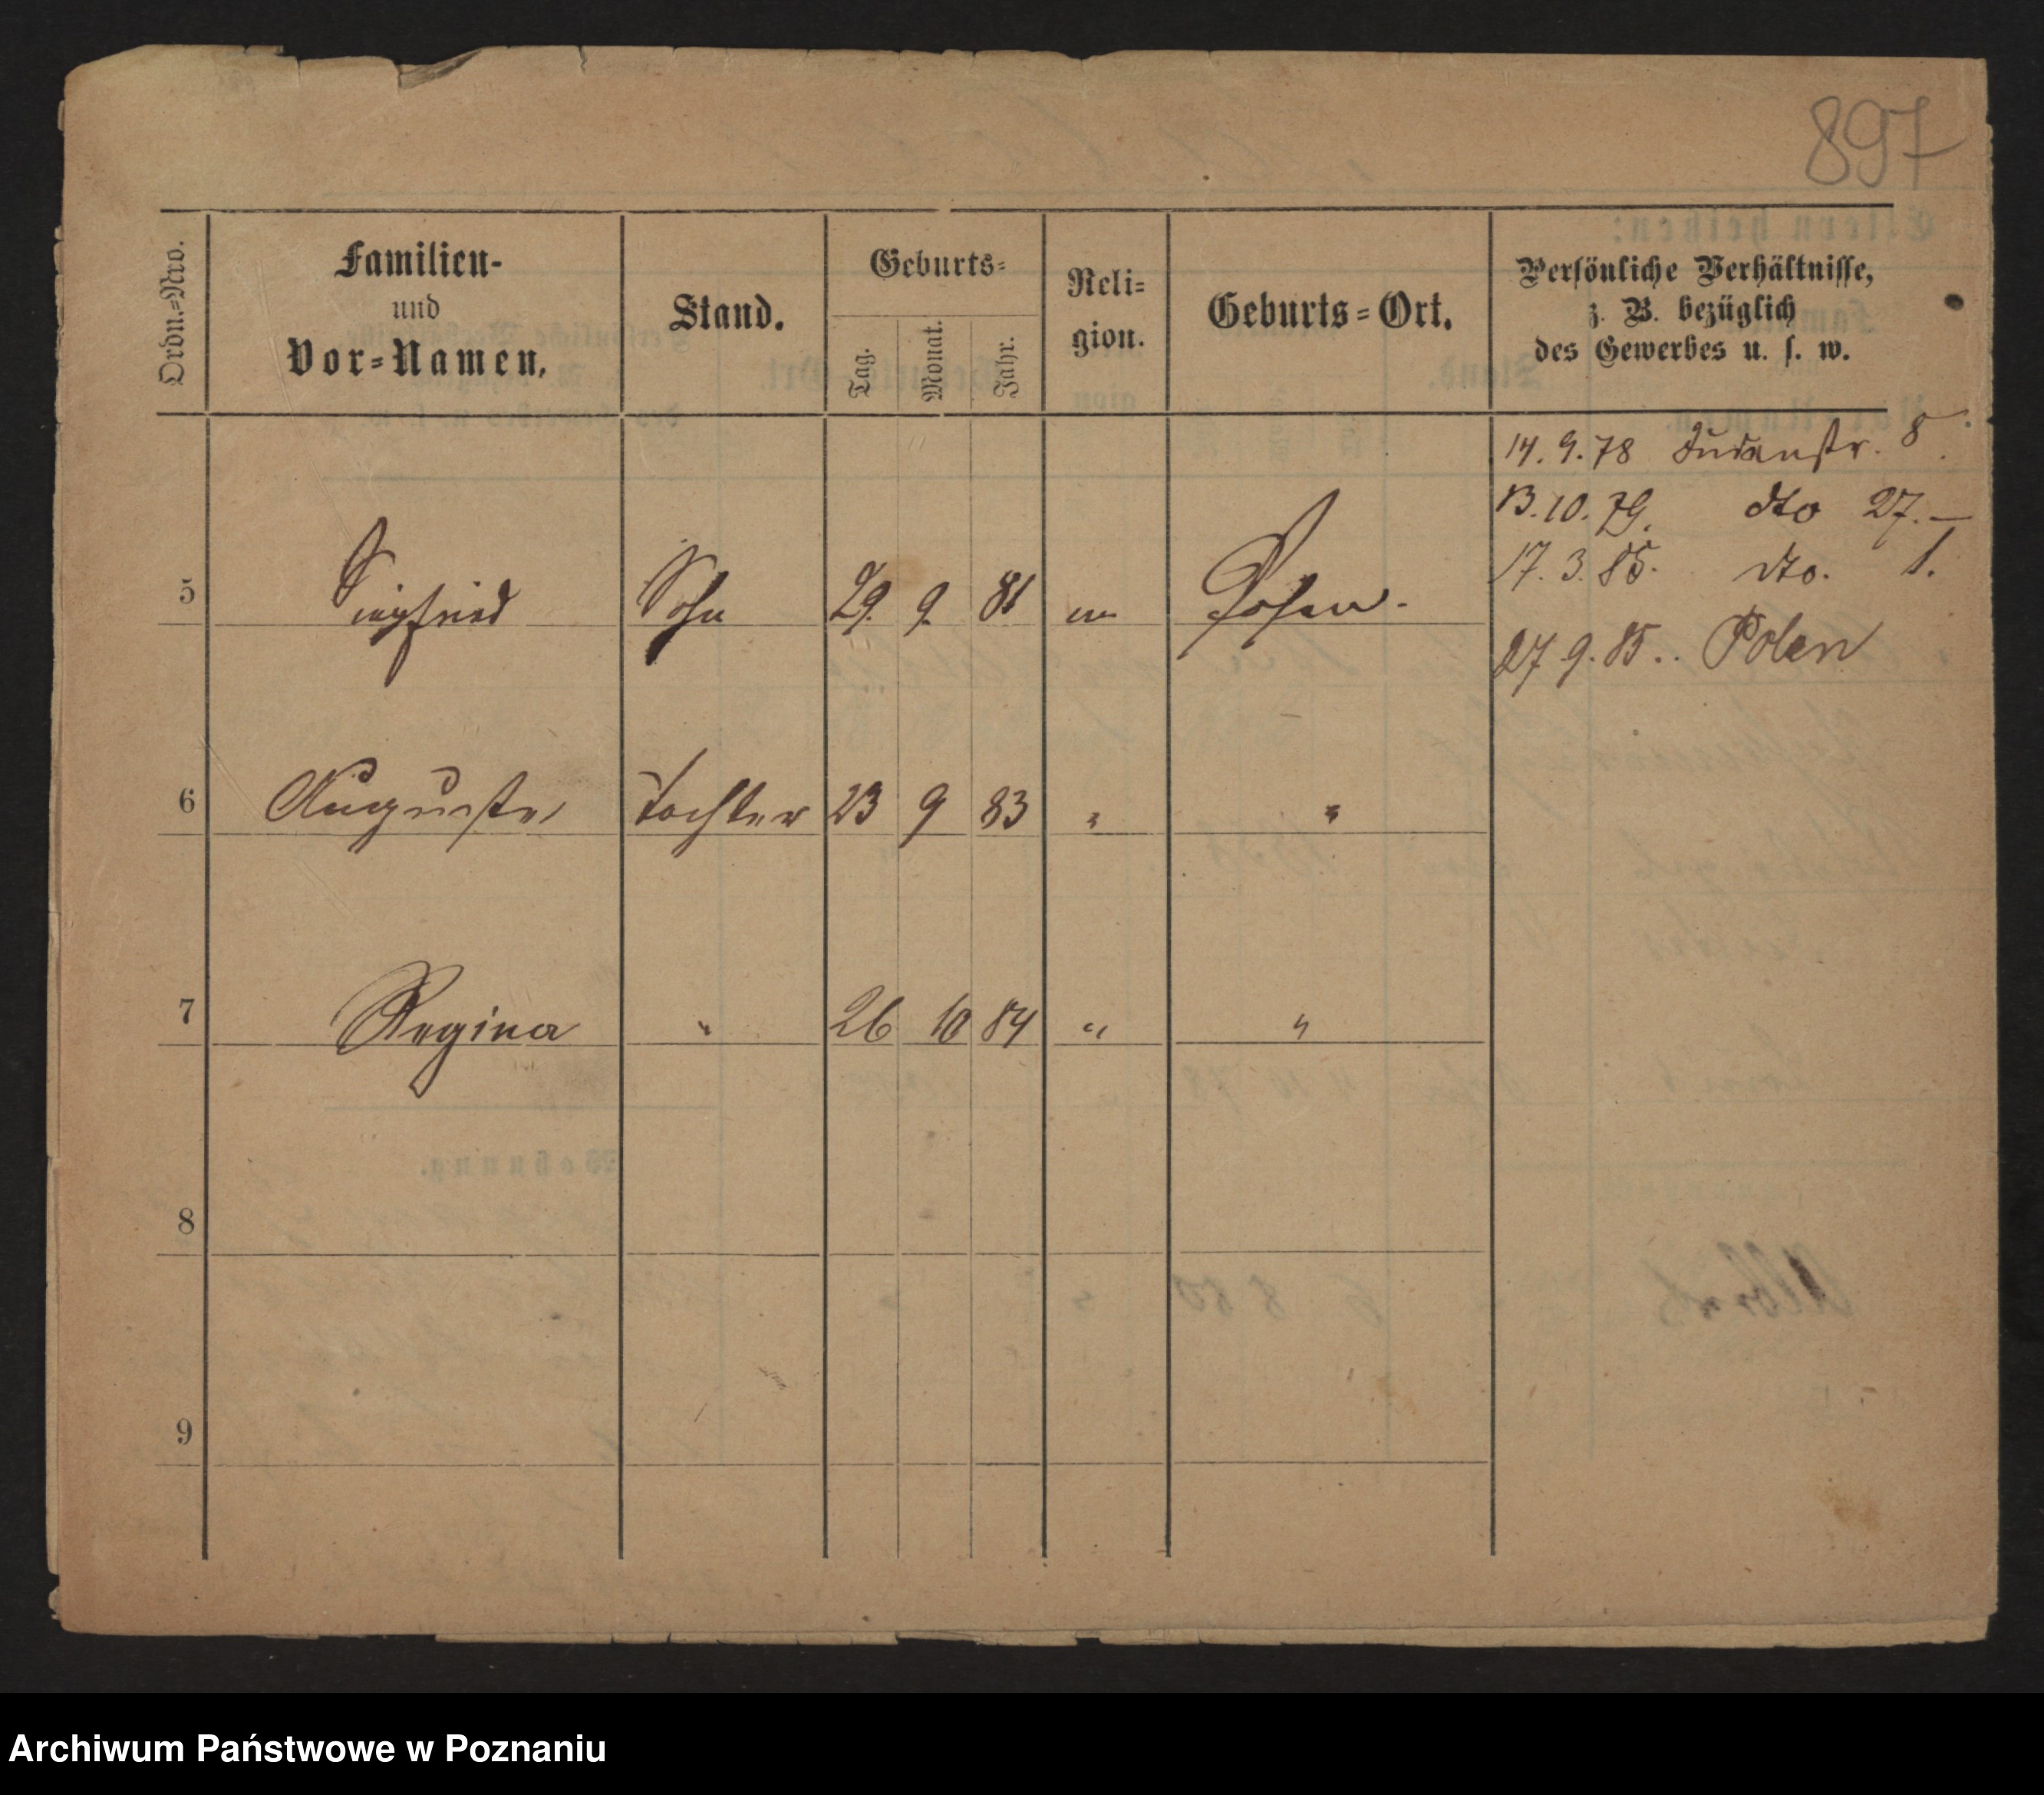 897
Ordn.-Nro.
Familien-
und
Vor-Namen.
Stand.
Geburts-
Tag.
Monat.
Jahr.
Reli-
gion.
Geburts-Ort.
Persönliche Verhältnisse,
z. B. bezüglich
des Gewerbes u. s. w.
14. 9. 78 Judenstr. 8.
13. 10. 79. dto 27. —
17. 3. 85. dto. 1.
5 Siegfried Sohn 29. 9. 81 Posen.
27 9. 85. . Polen
6 Auguste Tochter 23 9 83 " "
7 Regina " 26 10 84 " "
8
9
Archiwum Państwowe w Poznaniu